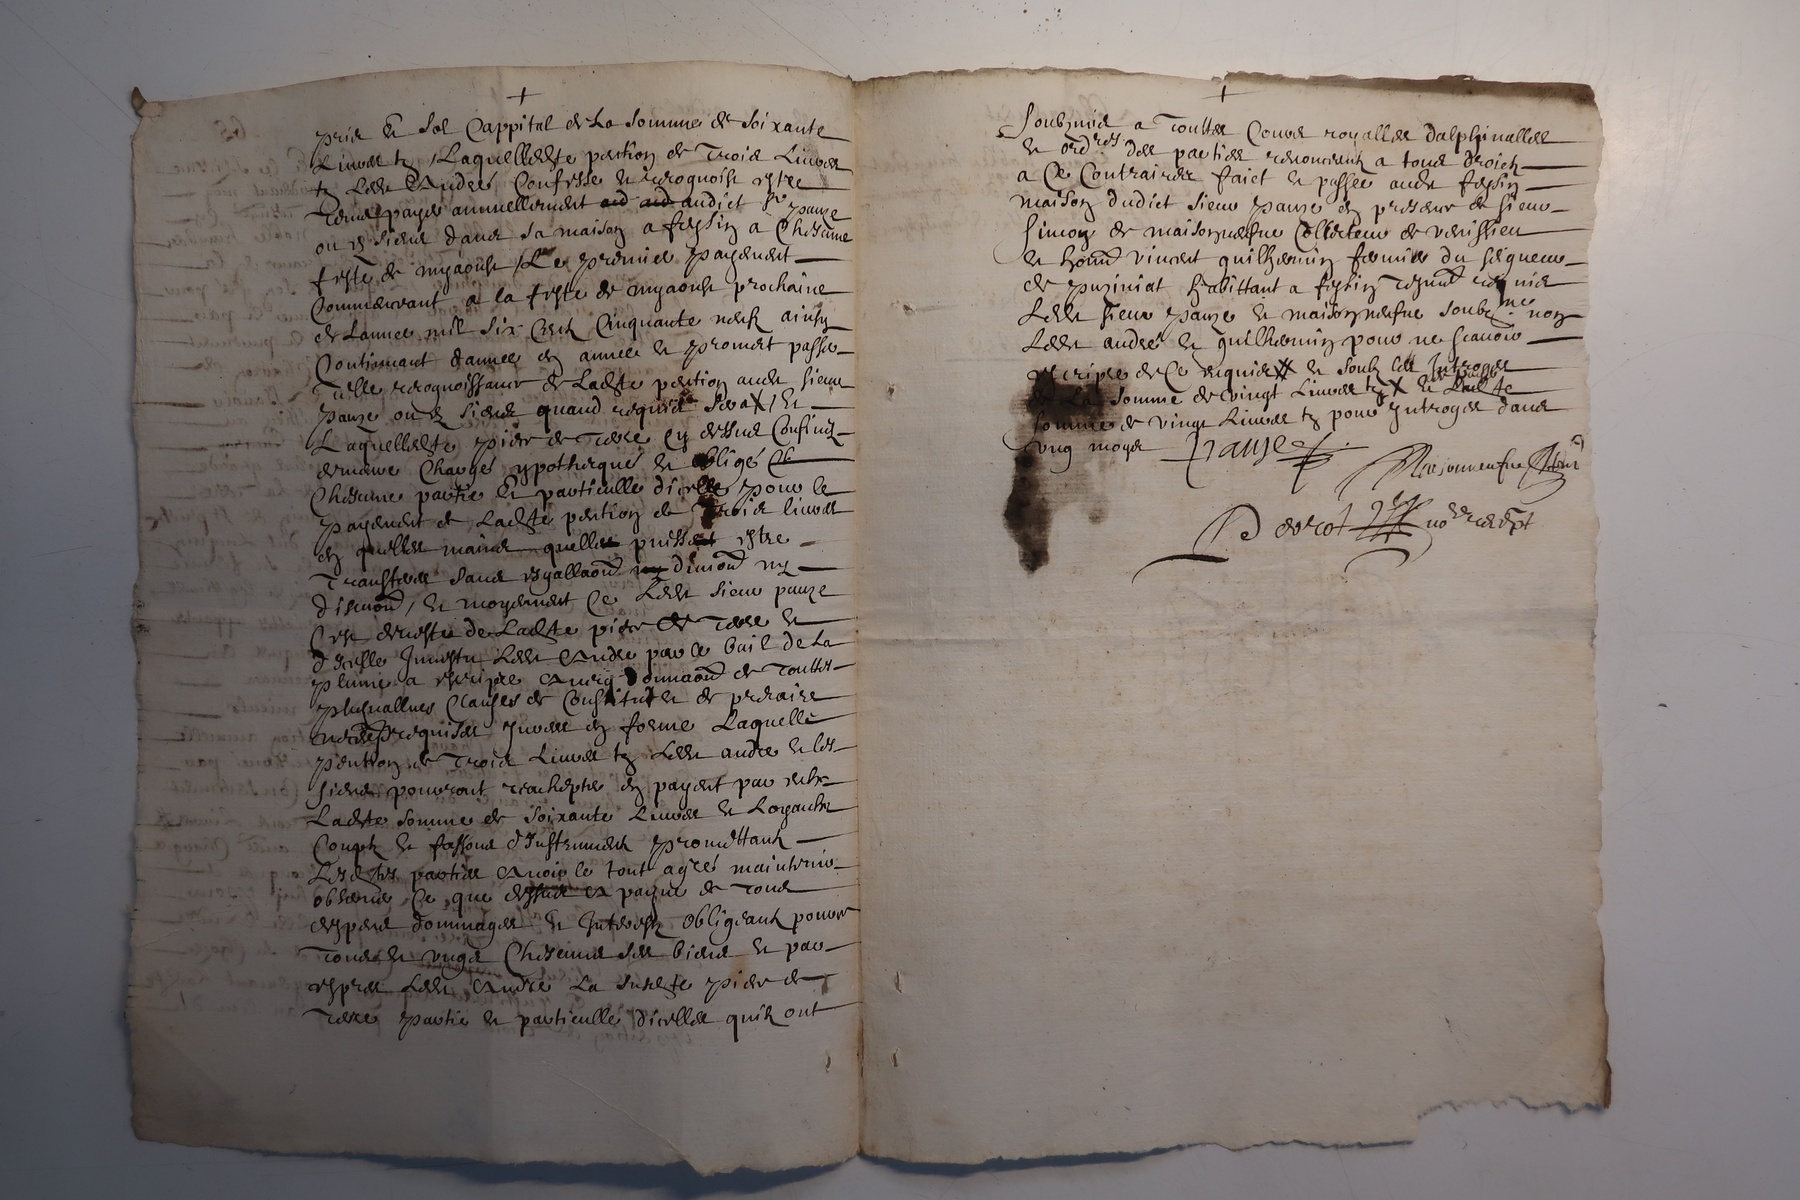 pris En sol Cappital de La somme de soixante
Livres tz / Laquelle dicte pention de Trois Livres
tz Ledt André Confesse et recognoist estre
Tenu payer annuellement aud aud audict Sr panze
ou es siens dans sa maison a feysin a Chascune
feste de myaoust / Le premier payement
Commencant a la feste de myaoust prochaine
de Lannee mil six Cent Cinquante neuf ainsy
Continuant dannee en annee et promet passer
Telle recognoissance de Ladte pention audt sieur
panze ou es siens quand requis sera X / Et
Laquelle dte piece de Terre cy dessus Confinee
demeure Chargé ypothequé et obligé
Chascune partie Et particulle dicelle pour le
payement de Ladte pention de Trois livres
en quelles mains quelles puissent estre
Transferes sans
division / Et moyenant Ce Ledt sieur panze
sest devestu de Ladte piece de Terre et
dicelle Investu Ledt André par le bail de La
plume a escripre de Touttes
Clauses de Constitut et de precaire
requises Jures en forme Laquelle
pention de Trois Livres tz Ledt andre et les
siens pourront reachepter en payant par
Ladte somme de soixante Livres et Loyaulx
Coupts et fassons dInstrument promettant
Lesdtes parties avoir le tout agreé maintenir
observer Ce que dessus a payne de Tous
despens dommages et Interests obligeant pour
Tous et unge Chascuns ses biens et par
expres Ledt André La susdte piece de
Terre partie et particulle dicelles quilz ont
soubzmis a Touttes Cours royalles dalphinalles
et ordres des parties renoncient a tous droicts
a Ce Contraires faict et passé audt feysin
maison dudict sieur panze en presence de sieur
simon de maisonneufve Collecteur de venissieu
et honn vincent guilhermin fermier du seigneur
de puziniat habittant a feysin
Ledt sieur panze et maisonneufve soubz nes non
Ledt andré et guilhermin pour ne scavoir
escripre de Ce requis X et soubz les Introges
de La somme de vingt Livres tz X et Ladte
somme de vingt Livres tz pour Introges dans
ung moys Panze
Maisonneufve
Perrot nore recept